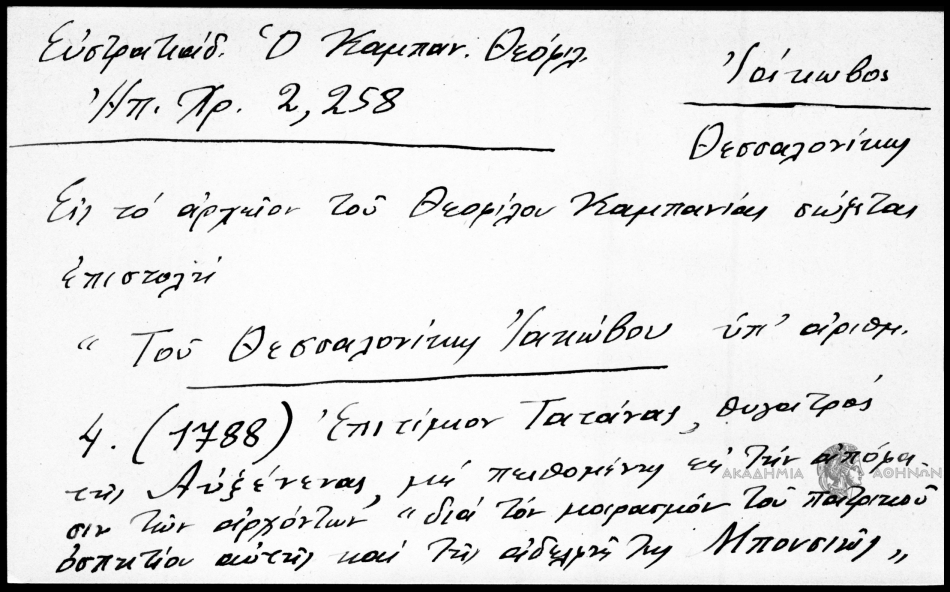 Εὐστρατιάδ. Ὁ Καμπαν. Θεόφιλ.
Ἠπ. Χρ. 2, 258
Ἰάκωβος
Θεσσαλονίκης
Εἰς τό ἀρχεῖον τοῦ Θεοφίλου Καμπανίας σώζεται
ἐπιστολή
“ Τοῦ Θεσσαλονίκης Ἰακώβου ὑπ' ἀριθμ.
4. (1788) Ἐπιτίμιον Τατάνας, θυγατρός
τῆς Αὐξένενας, μή πειθομένης εἰς τήν ἀπόφα
σιν τῶν ἀρχόντων “διά τόν μοιρασμόν τοῦ πατρικοῦ
ὁσπητίου αὐτῆς καί τῆς ἀδελφῆς της Μπουσιῶς„
ΑΚΑΔΗΜΙΑ ΑΘΗΝΩΝ